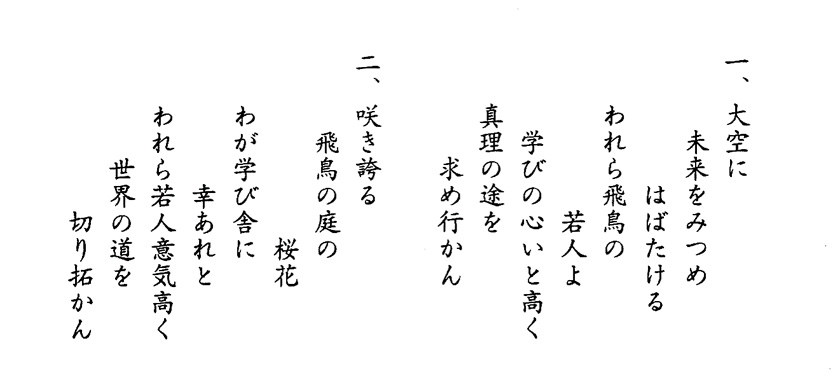 一、大空に
未来をみつめ
はばたける
われら飛鳥の
若人よ
学びの心いと高く
真理の途を
求め行かん
二、咲き誇る
飛鳥の庭の
桜花
わが学び舎に
幸あれと
われら若人意気高く
世界の道を
切り拓かん